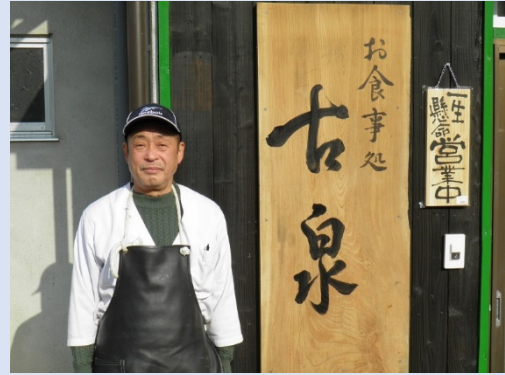 お食事処
古泉
一生
懸命
営業中